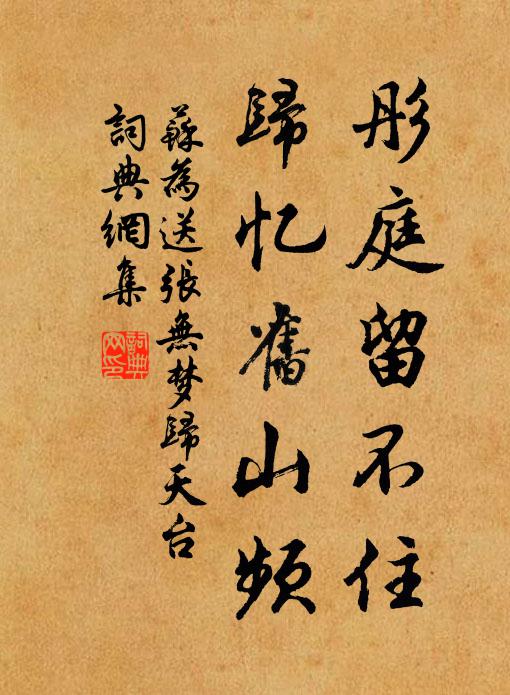 彤庭留不住
歸忆舊山頻
蘇為送張無梦歸天台
詞典網集
詞典網印